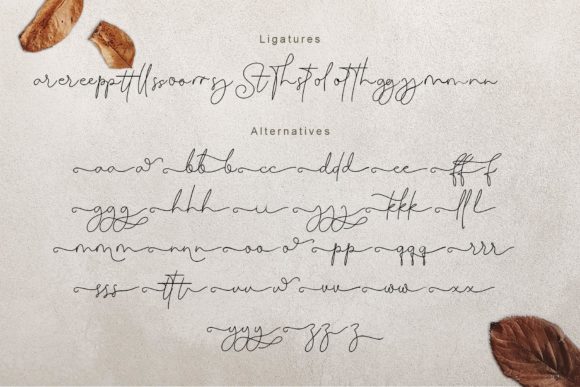 Ligatures
arereeppttllssoorrsy St Th st ol ot th gg y mm nn
Alternatives
aaa bbb ccc ddd ee fff
ggg hhh ii jjj kkk lll
mmm nnn ooo pp qqq rrr
sss ttt uuu vv ww xx
yyy zzz